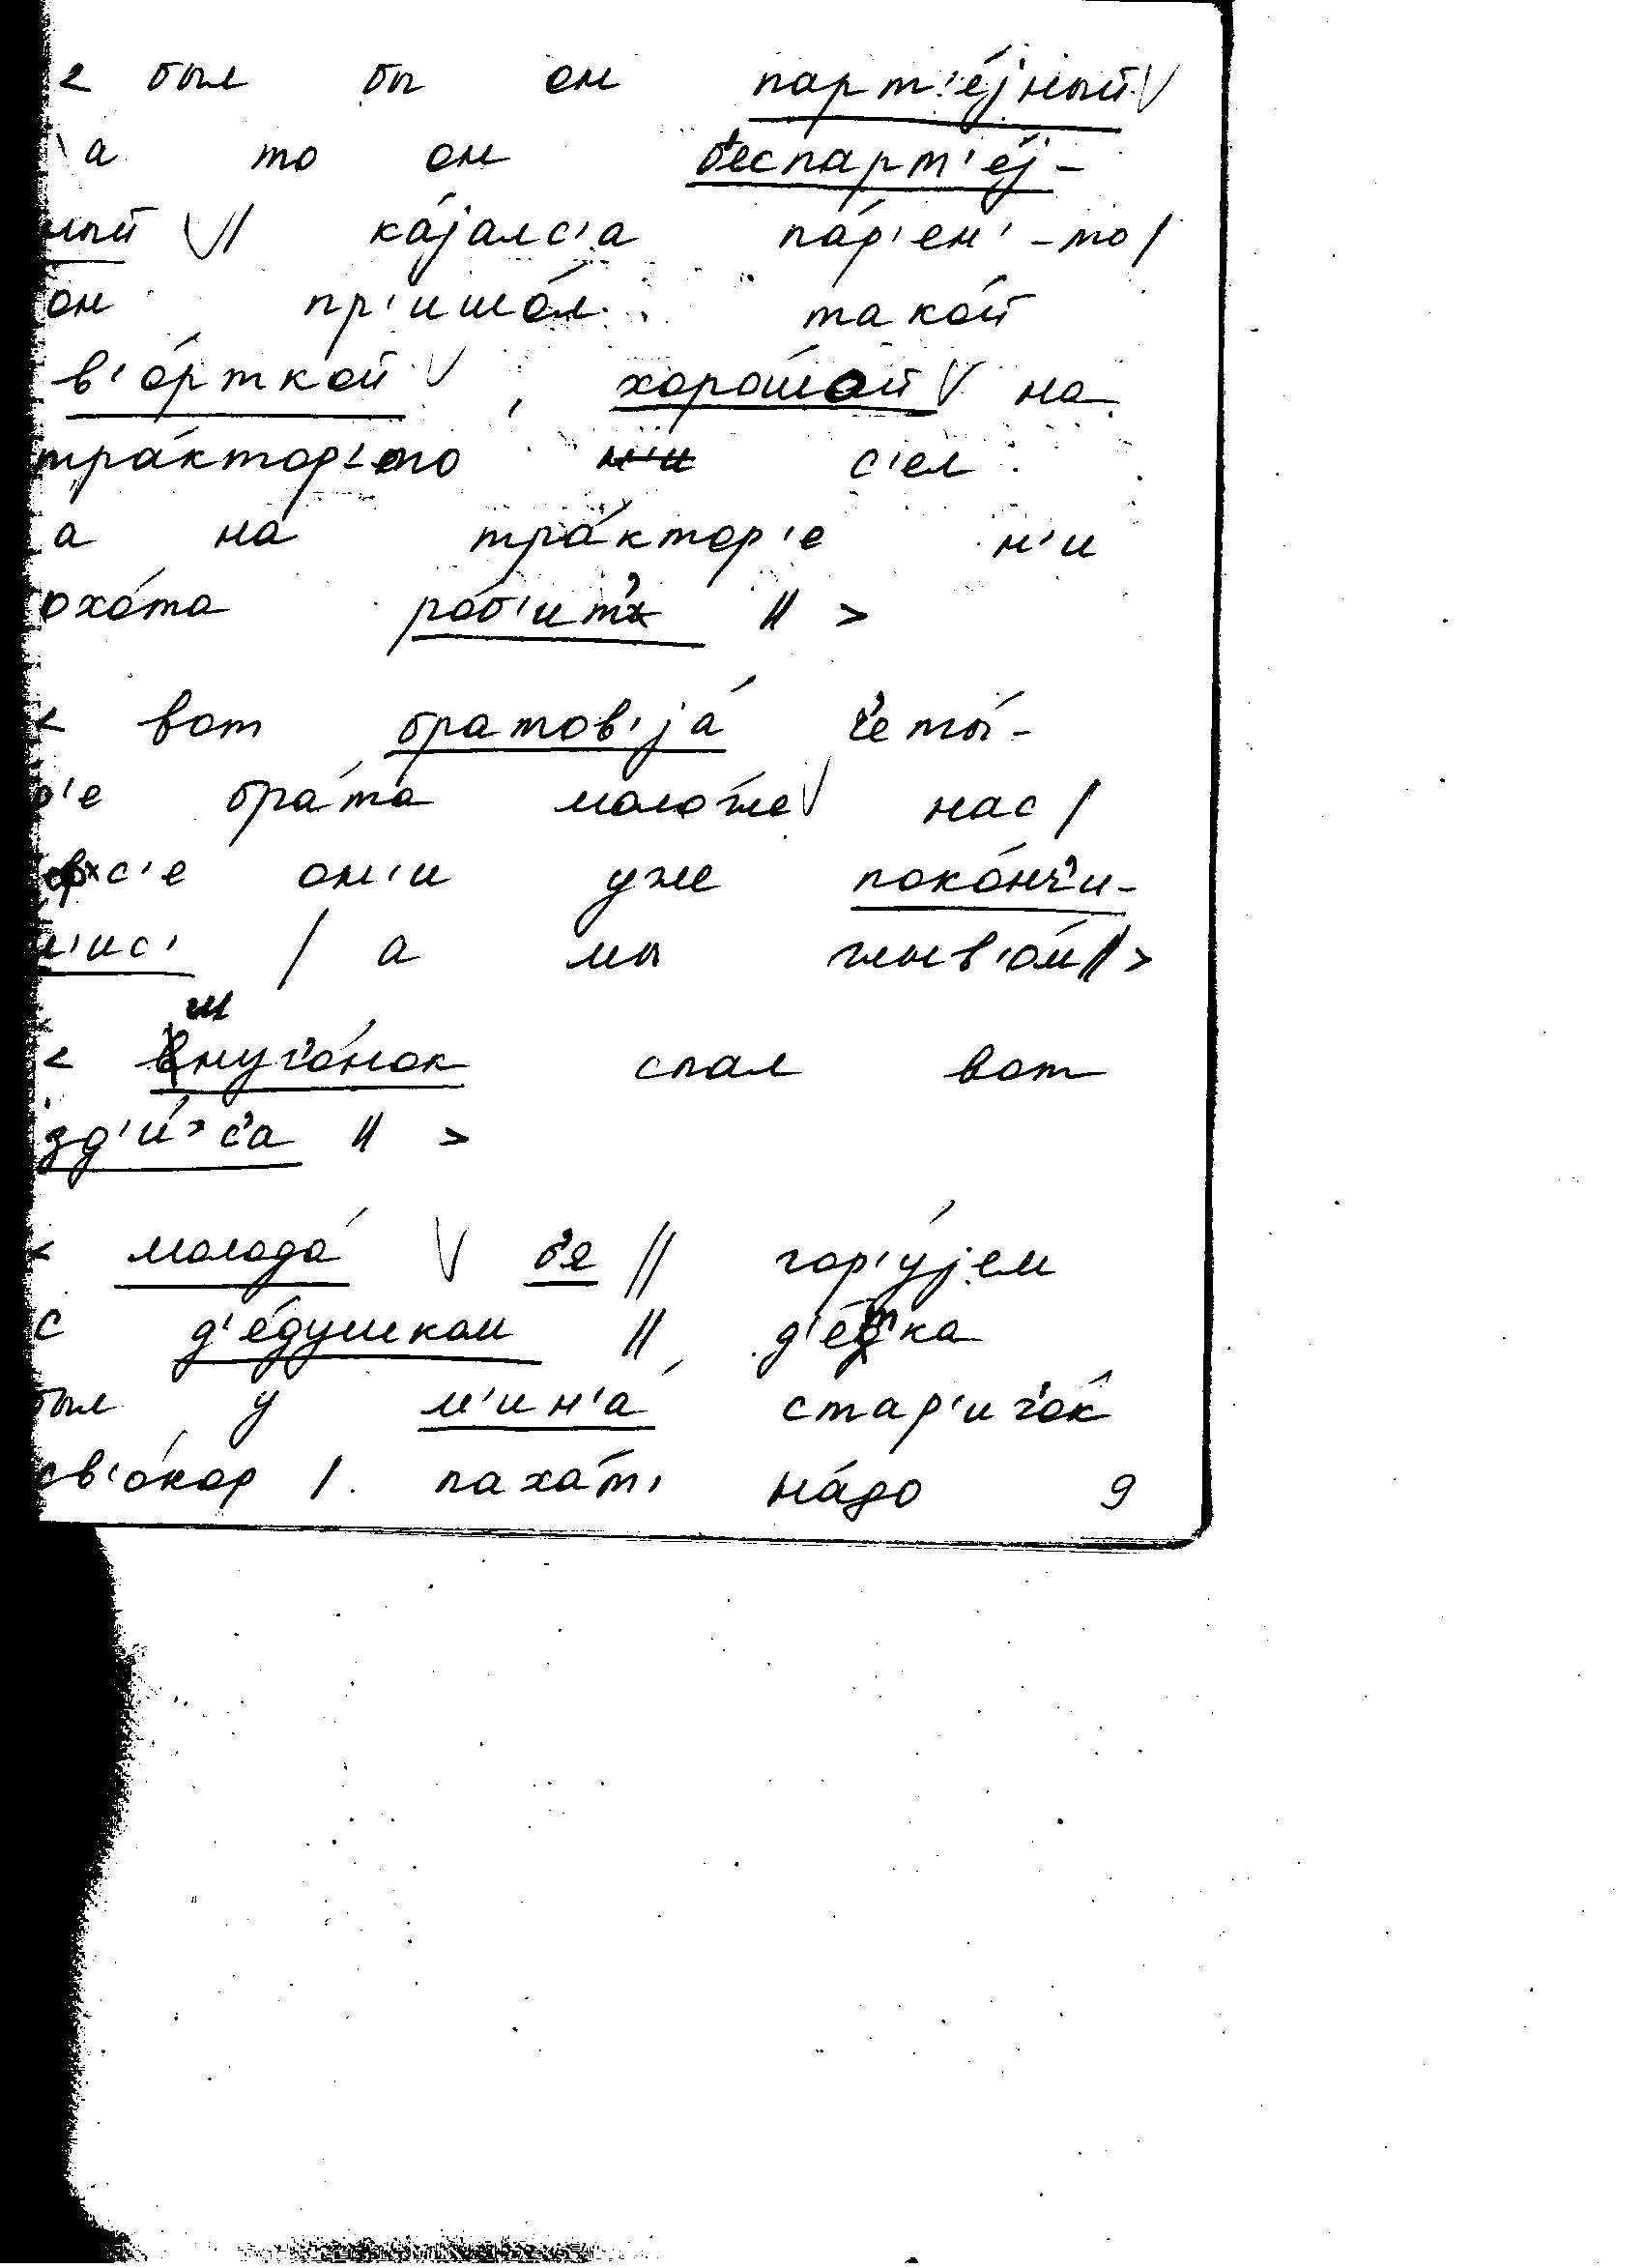 < был бы он парт'е́jный V
\ а то он б'еспарт'е́j-
ный V// ка́jалс'а па́р'ен'-то/
он пр'ишо́л тако́й
в'о́рткой V, хоро́шой V на
тра́ктор'-то с'ел
а на тра́ктор'е н'и
охо́та ро́б'ит' // >
< вот братов'jа́ ч'еты́-
р'е бра́та моло́же V нас /
фс'е он'и уже поко́нч'и-
л'ис' / а мы жыв'о́м // >
< мнуч'о́нок спал вот
зд'и́с'а // >
< молода́ V б'е // гор'у́jем
с д'е́душком // д'е́тка
был у м'ин'а́ стар'ич'о́к
св'о́кор /. паха́т' на́до 9